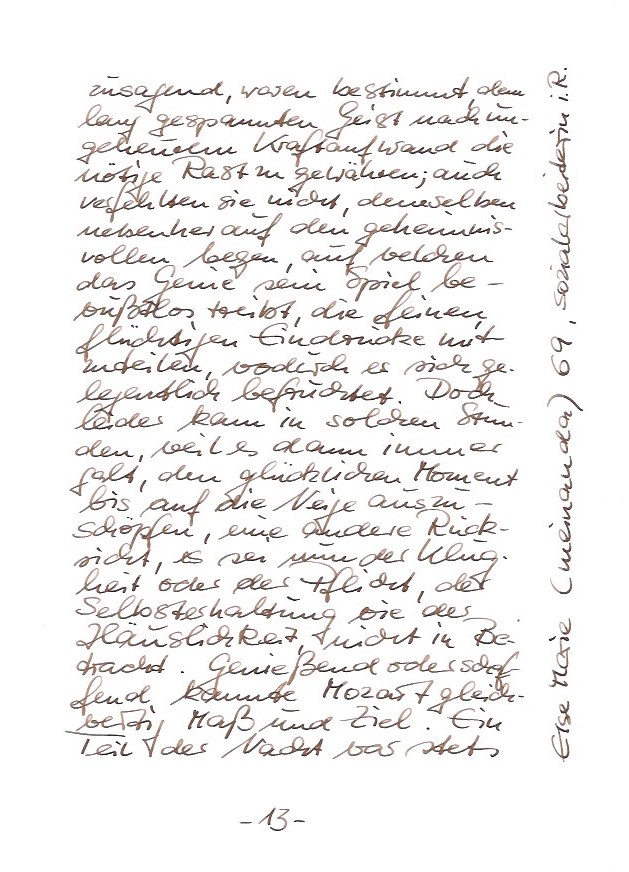 zusagend, waren bestimmt, dem
lang gespannten Geist nach un-
geheuerem Kraftaufwand die
nötige Rast zu gewähren; auch
verfehlten sie nicht, demselben
nebenher auf den geheimnis-
vollen Wegen, auf welchen
das Genie sein Spiel be-
wußtlos treibt, die feinen
flüchtigen Eindrücke mit-
zuteilen, wodurch es sich ge-
legentlich befruchtet. Doch
leider kam in solchen Stun-
den, weil es dann immer
galt, den glücklichen Moment
bis auf die Neige auszu-
schöpfen, eine andere Rück-
sicht, es sei nun der Klug-
heit oder der Pflicht, der
Selbsterhaltung wie der
Häuslichkeit, nicht in Be-
tracht. Genießend oder schaf-
fend, kannte Mozart gleich-
wenig Maß und Ziel. Ein
Teil der Nacht war stets
- 13 -
Else Marie (meinanda) 69, Sozialarbeiterin i.R.